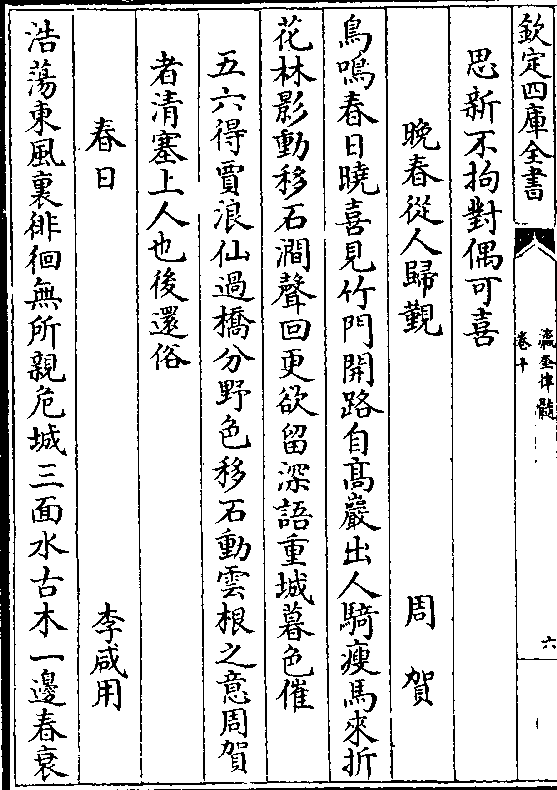 欽定四庫全書
瀛奎律髓
卷十
六
思新不拘對偶可喜
晚春從人歸覲 周賀
鳥鳴春日曉喜見竹門開路自高巖出人騎瘦馬來折
花林影動移石澗聲回更欲留深語重城暮色催
五六得賈浪仙過橋分野色移石動雲根之意周賀
者清塞上人也後還俗
春日 李咸用
浩蕩東風裏徘徊無所親危城三面水古木一邊春衰